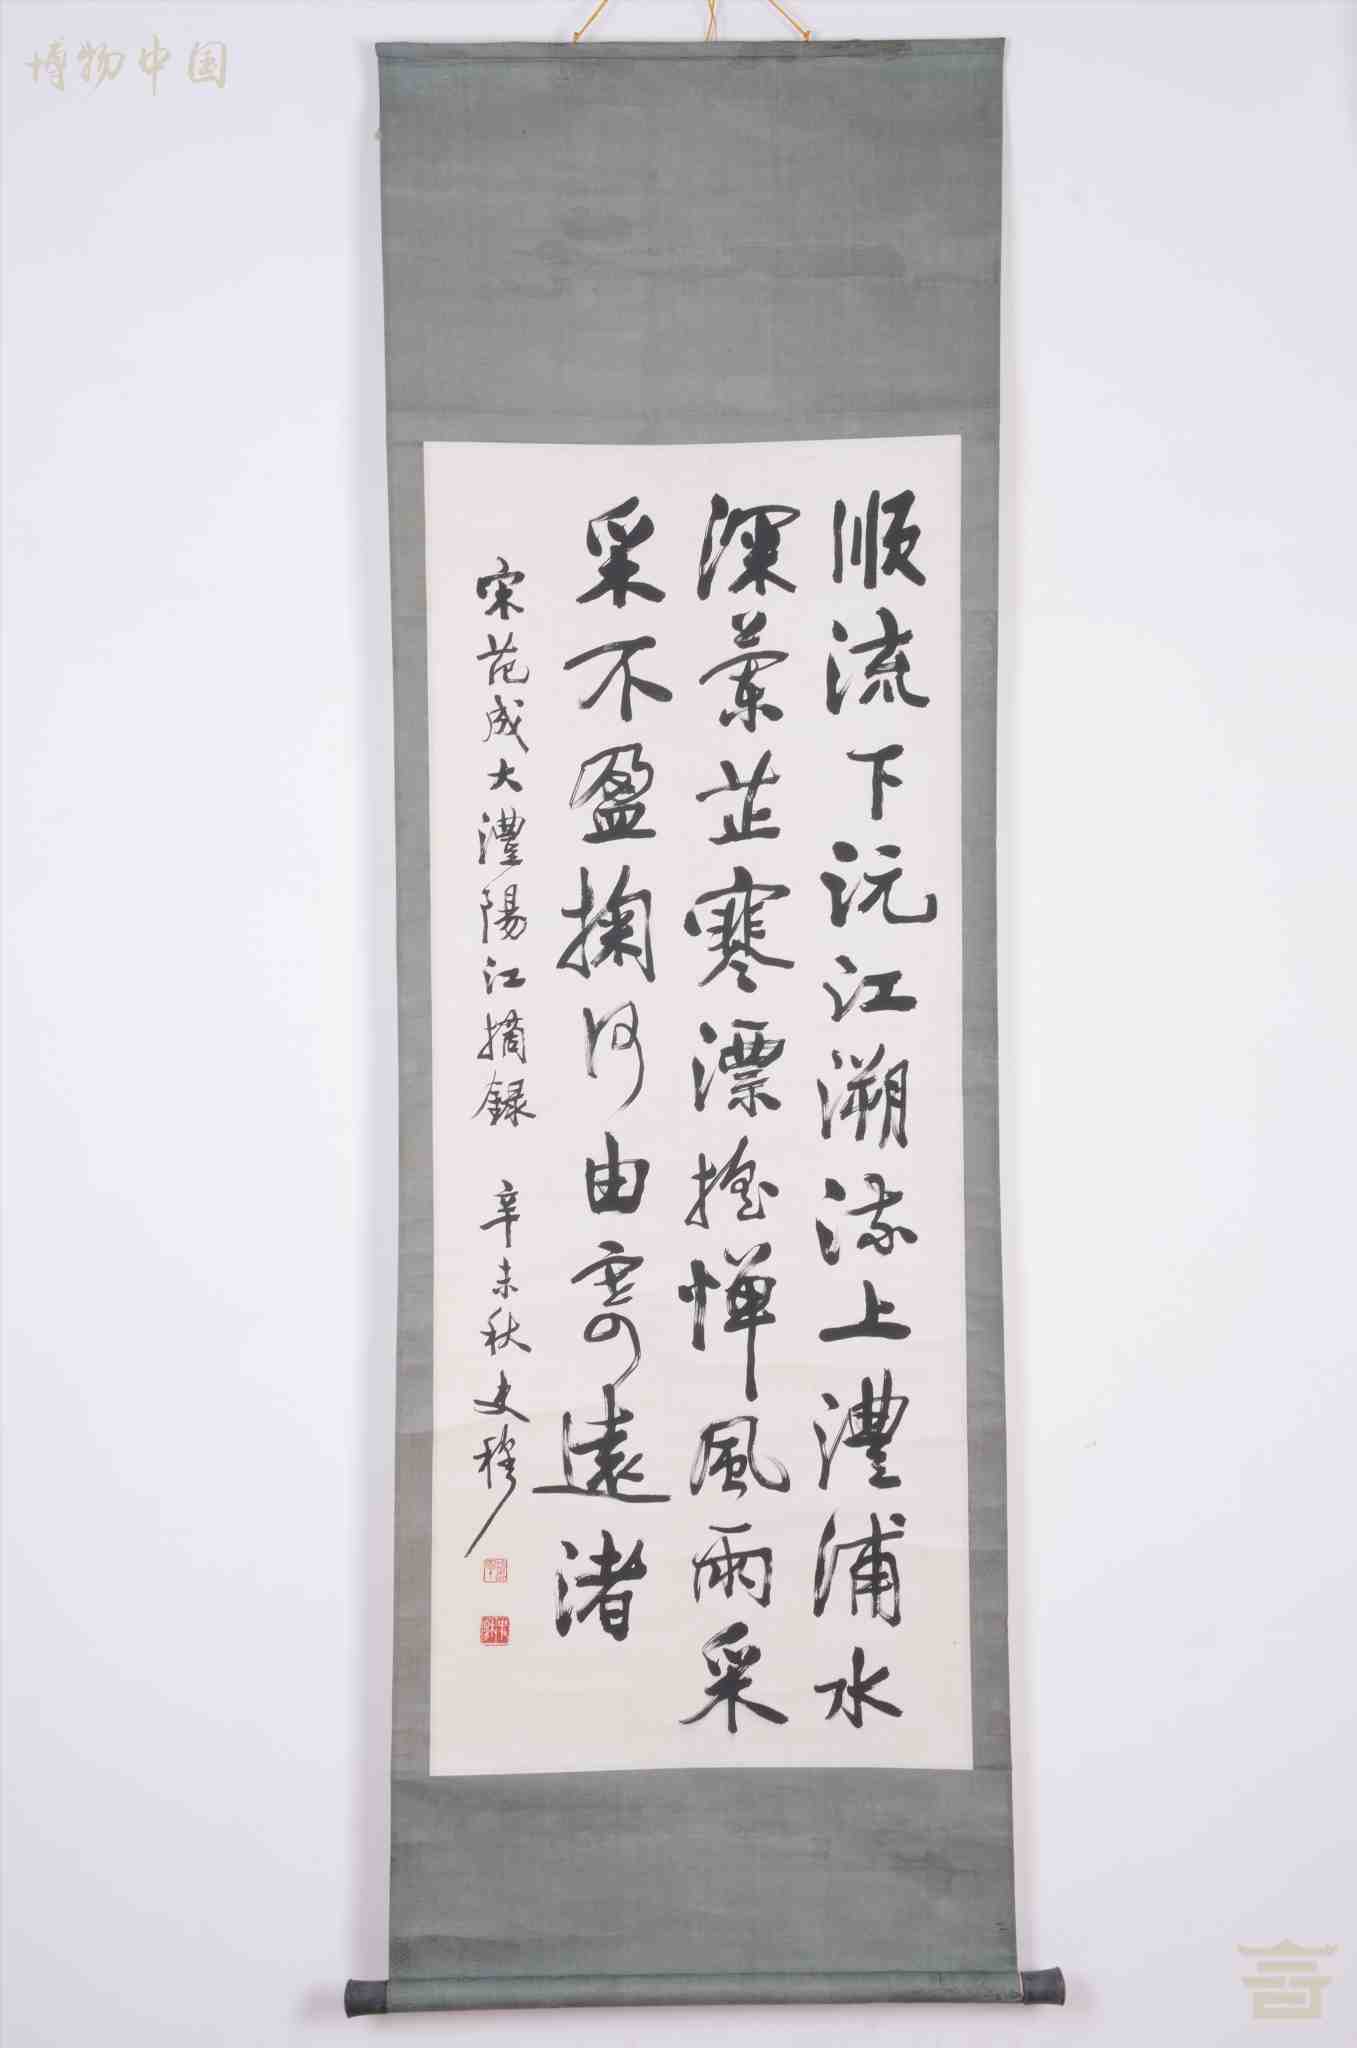 順流下沅江溯流上澧浦水
深蘭芷寒漂搖憚風雨采
采不盈掬何由寄遠渚
宋范成大澧陽江摘録 辛未秋史穆
博物中国